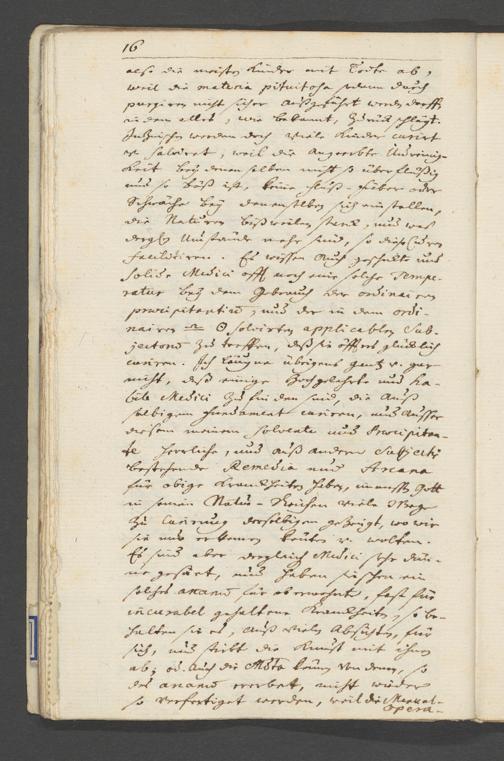 16
also die meisten Kinder mit Todte ab,
weil die materia pituitosa denen durch
purgiren nicht sicher ausgeführt werden darff,
indem alles, wie bekannt, zurück schlägt.
Inzwischen werden doch viele Kinder curirt
et salviret, weil die angeerbte Unreinig-
keit bey denenselben nicht so überflüßig
und so böß ist, keine Fieber oder
Schwäche bey denenselben sich einstellen,
die Naturen bißweilen starck, und was
dergl. Umstände mehr sind, so diese Curen
facilitiren. Es wissen auch geschickte und
solide Medici offt noch eine solche Tempe-
ratur bey dem Gebrauch der ordinairen
praecipitantium, und der in dem ordi-
nairen solvirten applicablen Sub-
jectorum zu treffen, daß sie öffters glücklich
curiren. Ich läugne übrigens gantz u. gar
nicht, daß einige Hochgelahrte und ha-
bile Medici zu finden sind, die auß
selbigem Fundament curiren, und ausser
diesem meinem solvente und Praecipitan-
te herrliche, und auß andern Subjectis
bestehende Remedia und Arcana
für obige Kranckheiten haben, immassen Gott
in seinem Natur-Reichen viele Wege
zu Curirung derselbigen gezeigt, wo wir
sie nur erkennen könten u. wolten.
Es sind aber dergleichen Medici sehr dün-
ne gesäet, und haben sie schon ein
solches arcanum für oberwehnte, fast für
incurabel gehaltene Kranckheiten, so be-
halten sie es, auß vielen Absichten, für
sich, und stirbt die Kunst mit ihnen
ab; od. auch die Msta können von denen, so
das arcanum ererbet, nicht wieder
so verfertiget werden, weil die Manual-
opera-